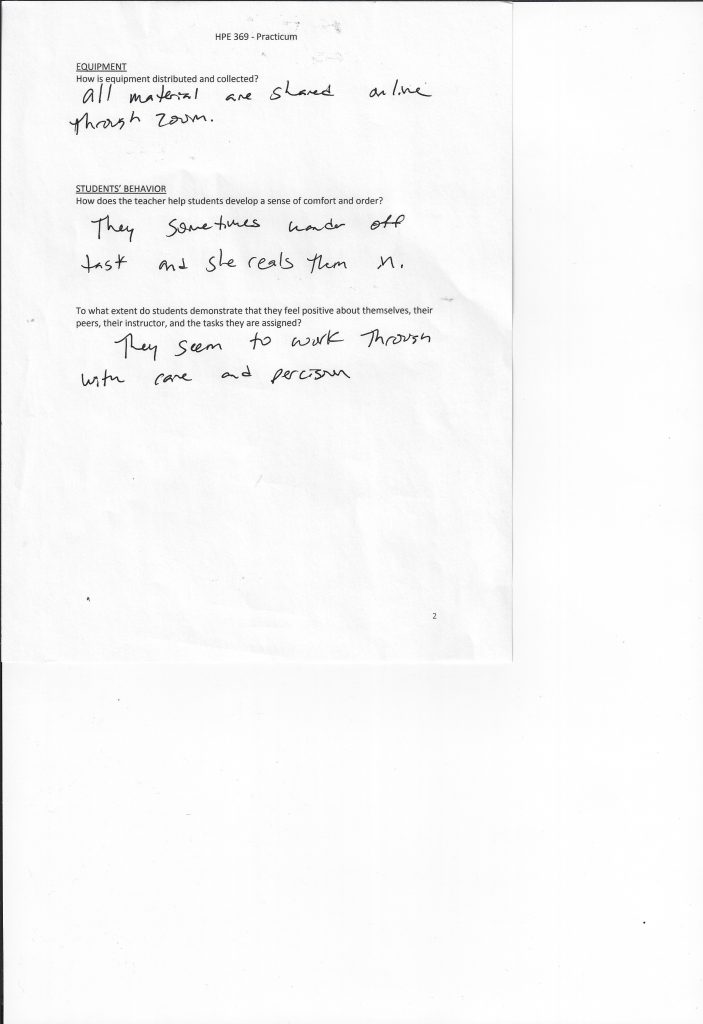 HPE 369 - Practicum
EQUIPMENT
How is equipment distributed and collected?
All material are shared online
through zoom.
STUDENTS' BEHAVIOR
How does the teacher help students develop a sense of comfort and order?
They sometimes wander off
task and she reals them in.
To what extent do students demonstrate that they feel positive about themselves, their
peers, their instructor, and the tasks they are assigned?
They seem to work through
with care and percision
2